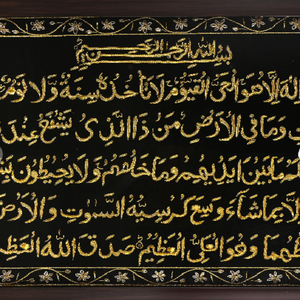 بسم الله الرحمن الرحيم
الله إلا هو الحي القيوم لا تأخذه سنة ولا نوم
وما في الأرض من ذا الذي يشفع عنده
ما بين أيديهم وما خلفهم ولا يحيطون
إلا بما شاء وسع كرسيه السموات والأرض
حفظهما وهو العلي العظيم صدق الله العظيم